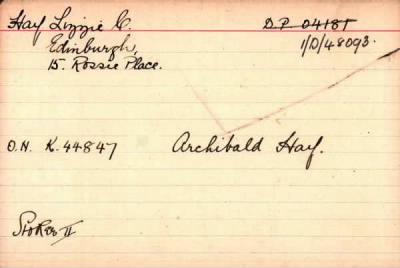 Hay Lizzie C.
D.P. 04181
Edinburgh,
1/D/48093.
15. Rossie Place.
O.N. K. 44847 Archibald Hay.
Stoker II